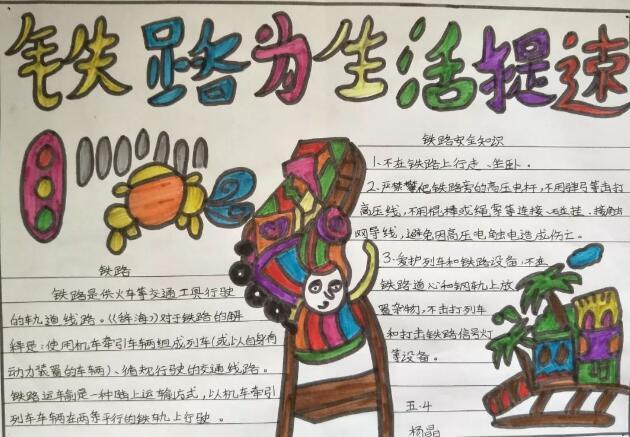 铁路为生活提速
铁路安全知识
1、不在铁路上行走、坐卧。
2、严禁攀爬铁路旁的高压电杆,不用弹弓等击打
高压线,不用棍棒或绳索等连接、碰挂、接触
网导线,避免因高压电触电造成伤亡。
3、爱护列车和铁路设备,不在
铁路道心和钢轨上放
置杂物,不击打列车
和打击铁路信号灯
等设备。
五.4
杨晶
铁路
铁路是供火车等交通工具行驶
的轨道线路。《辞海》对于铁路的解
释是:使用机车牵引车辆组成列车(或以自身有
动力装置的车辆)、循规行驶的交通线路。
铁路运输是一种陆上运输方式,以机车牵引
列车车辆在两条平行的铁轨上行驶。